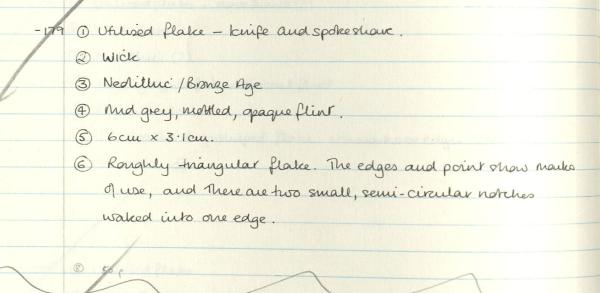 -179 ① Utilised flake - knife and spokeshave.
② Wick
③ Neolithic / Bronze Age
④ Mid grey, mottled, opaque flint.
⑤ 6cm x 3.1cm.
⑥ Roughly triangular flake. The edges and point show marks
of use, and there are two small, semi-circular notches
worked into one edge.
⑧